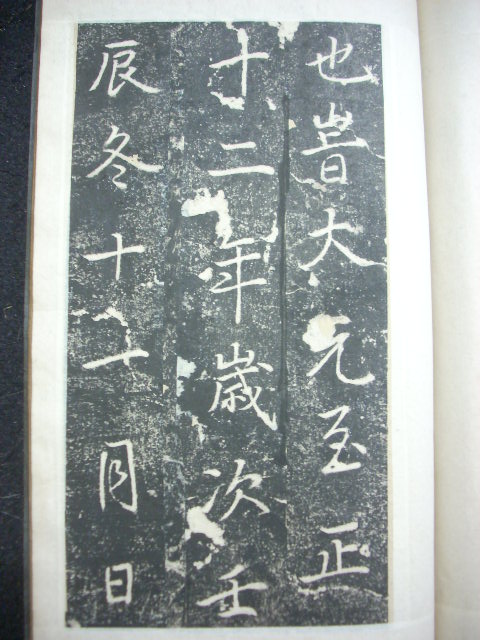 也旹大元至正
十二年歲次壬
辰冬十月日